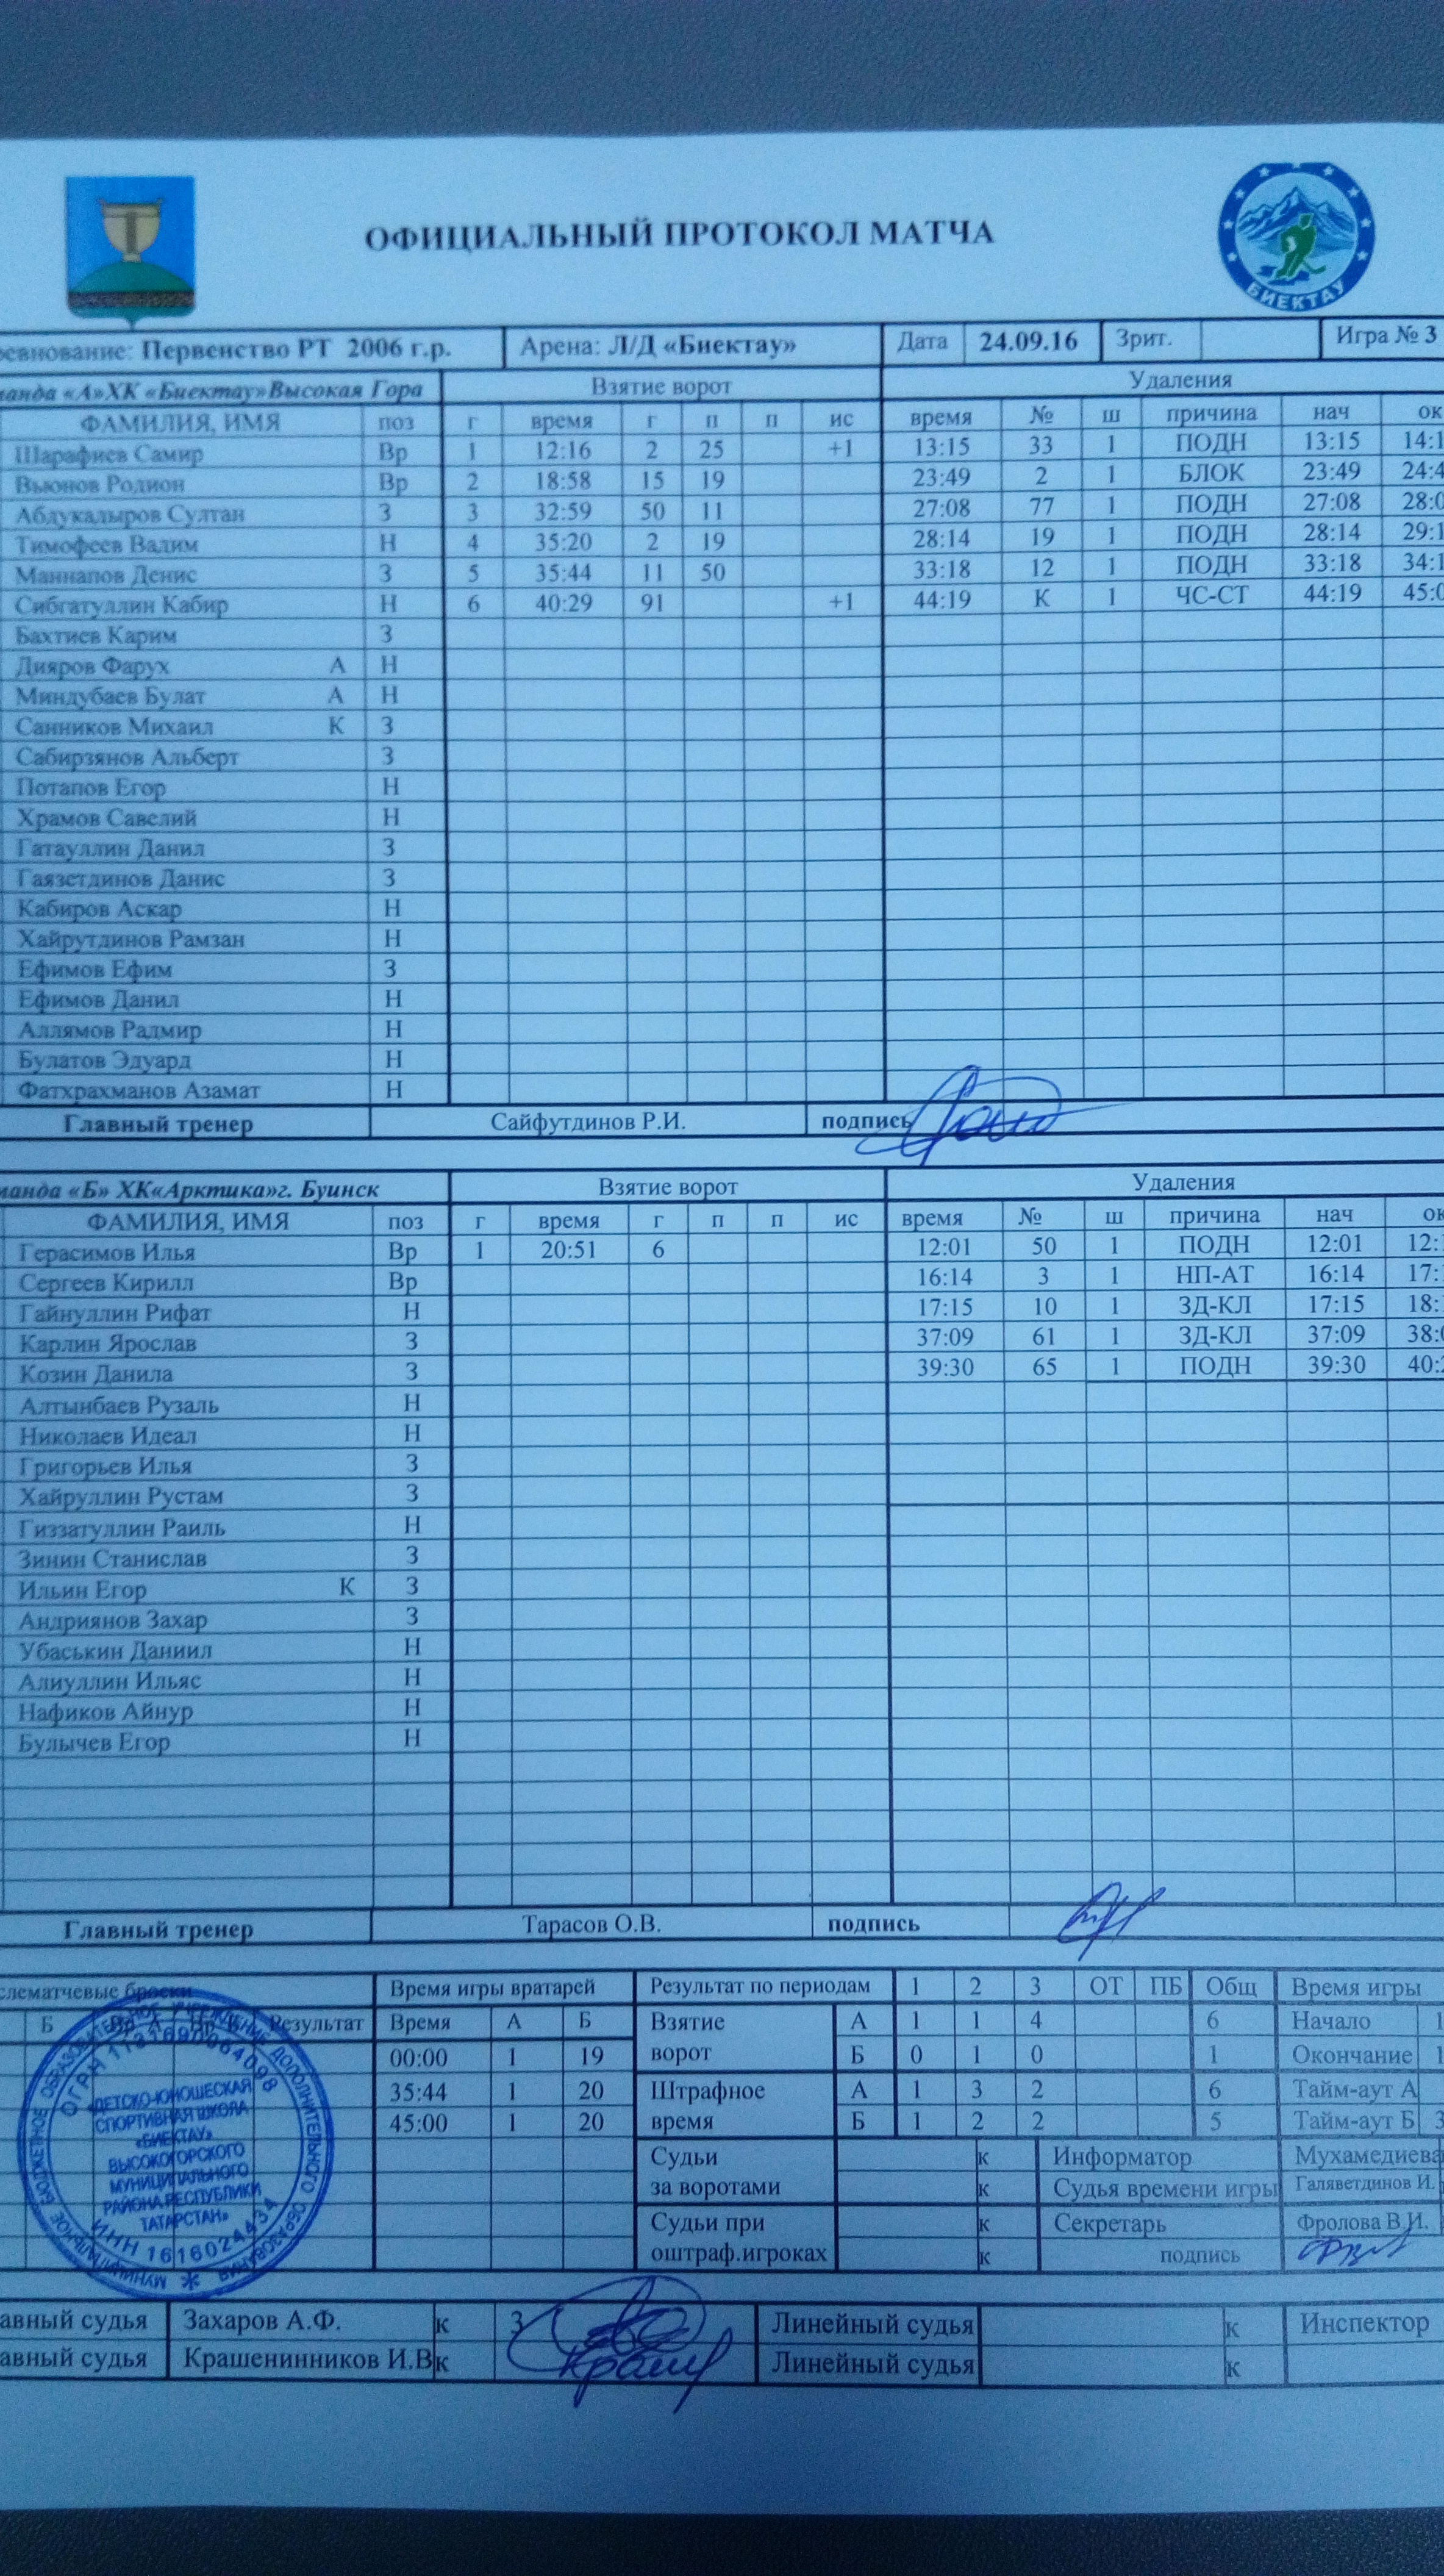 ОФИЦИАЛЬНЫЙ ПРОТОКОЛ МАТЧА
БИЕКТАУ
ревнование: Первенство РТ 2006 г.р. Арена: Л/Д «Биектау» Дата 24.09.16 Зрит. Игра № 3
манда «А»ХК «Биектау»Высокая Гора Взятие ворот Удаления
ФАМИЛИЯ, ИМЯ поз г время г п п ис время № ш причина нач ок
Шарафиев Самир Вр 1 12:16 2 25 +1 13:15 33 1 ПОДН 13:15 14:1
Вьюнов Родион Вр 2 18:58 15 19 23:49 2 1 БЛОК 23:49 24:4
Абдукадыров Султан З 3 32:59 50 11 27:08 77 1 ПОДН 27:08 28:0
Тимофеев Вадим Н 4 35:20 2 19 28:14 19 1 ПОДН 28:14 29:1
Маннапов Денис З 5 35:44 11 50 33:18 12 1 ПОДН 33:18 34:1
Сибгатуллин Кабир Н 6 40:29 91 +1 44:19 К 1 ЧС-СТ 44:19 45:0
Бахтиев Карим З
Дияров Фарух А Н
Миндубаев Булат А Н
Санников Михаил К З
Сабирзянов Альберт З
Потапов Егор Н
Храмов Савелий Н
Гатауллин Данил З
Гаязетдинов Данис З
Кабиров Аскар Н
Хайрутдинов Рамзан Н
Ефимов Ефим З
Ефимов Данил Н
Аллямов Радмир Н
Булатов Эдуард Н
Фатхрахманов Азамат Н
Главный тренер Сайфутдинов Р.И. подпись
манда «Б» ХК«Арктика»г. Буинск Взятие ворот Удаления
ФАМИЛИЯ, ИМЯ поз г время г п п ис время № ш причина нач ок
Герасимов Илья Вр 1 20:51 6 12:01 50 1 ПОДН 12:01 12:
Сергеев Кирилл Вр 16:14 3 1 НП-АТ 16:14 17:
Гайнуллин Рифат Н 17:15 10 1 ЗД-КЛ 17:15 18:
Карлин Ярослав З 37:09 61 1 ЗД-КЛ 37:09 38:0
Козин Данила З 39:30 65 1 ПОДН 39:30 40:2
Алтынбаев Рузаль Н
Николаев Идеал Н
Григорьев Илья З
Хайруллин Рустам З
Гиззатуллин Раиль Н
Зинин Станислав З
Ильин Егор К З
Андриянов Захар З
Убаськин Даниил Н
Алиуллин Ильяс Н
Нафиков Айнур Н
Булычев Егор Н
Главный тренер Тарасов О.В. подпись
слематчевые броски Время игры вратарей Результат по периодам 1 2 3 ОТ ПБ Общ Время игры
Б Вр А Вр Б Результат Время А Б Взятие А 1 1 4 6 Начало 1
00:00 1 19 ворот Б 0 1 0 1 Окончание 1
35:44 1 20 Штрафное А 1 3 2 6 Тайм-аут А
45:00 1 20 время Б 1 2 2 5 Тайм-аут Б 3
Судьи к Информатор Мухамедиева
за воротами к Судья времени игры Галяветдинов И.
Судьи при к Секретарь Фролова В.И.
оштраф.игроках к подпись
ДЕТСКО-ЮНОШЕСКАЯ
СПОРТИВНАЯ ШКОЛА
«БИЕКТАУ»
ВЫСОКОГОРСКОГО
МУНИЦИПАЛЬНОГО
РАЙОНА РЕСПУБЛИКИ
ТАТАРСТАН»
ИНН 1616024434
авный судья Захаров А.Ф. к З Линейный судья к Инспектор
авный судья Крашенинников И.В к Линейный судья к